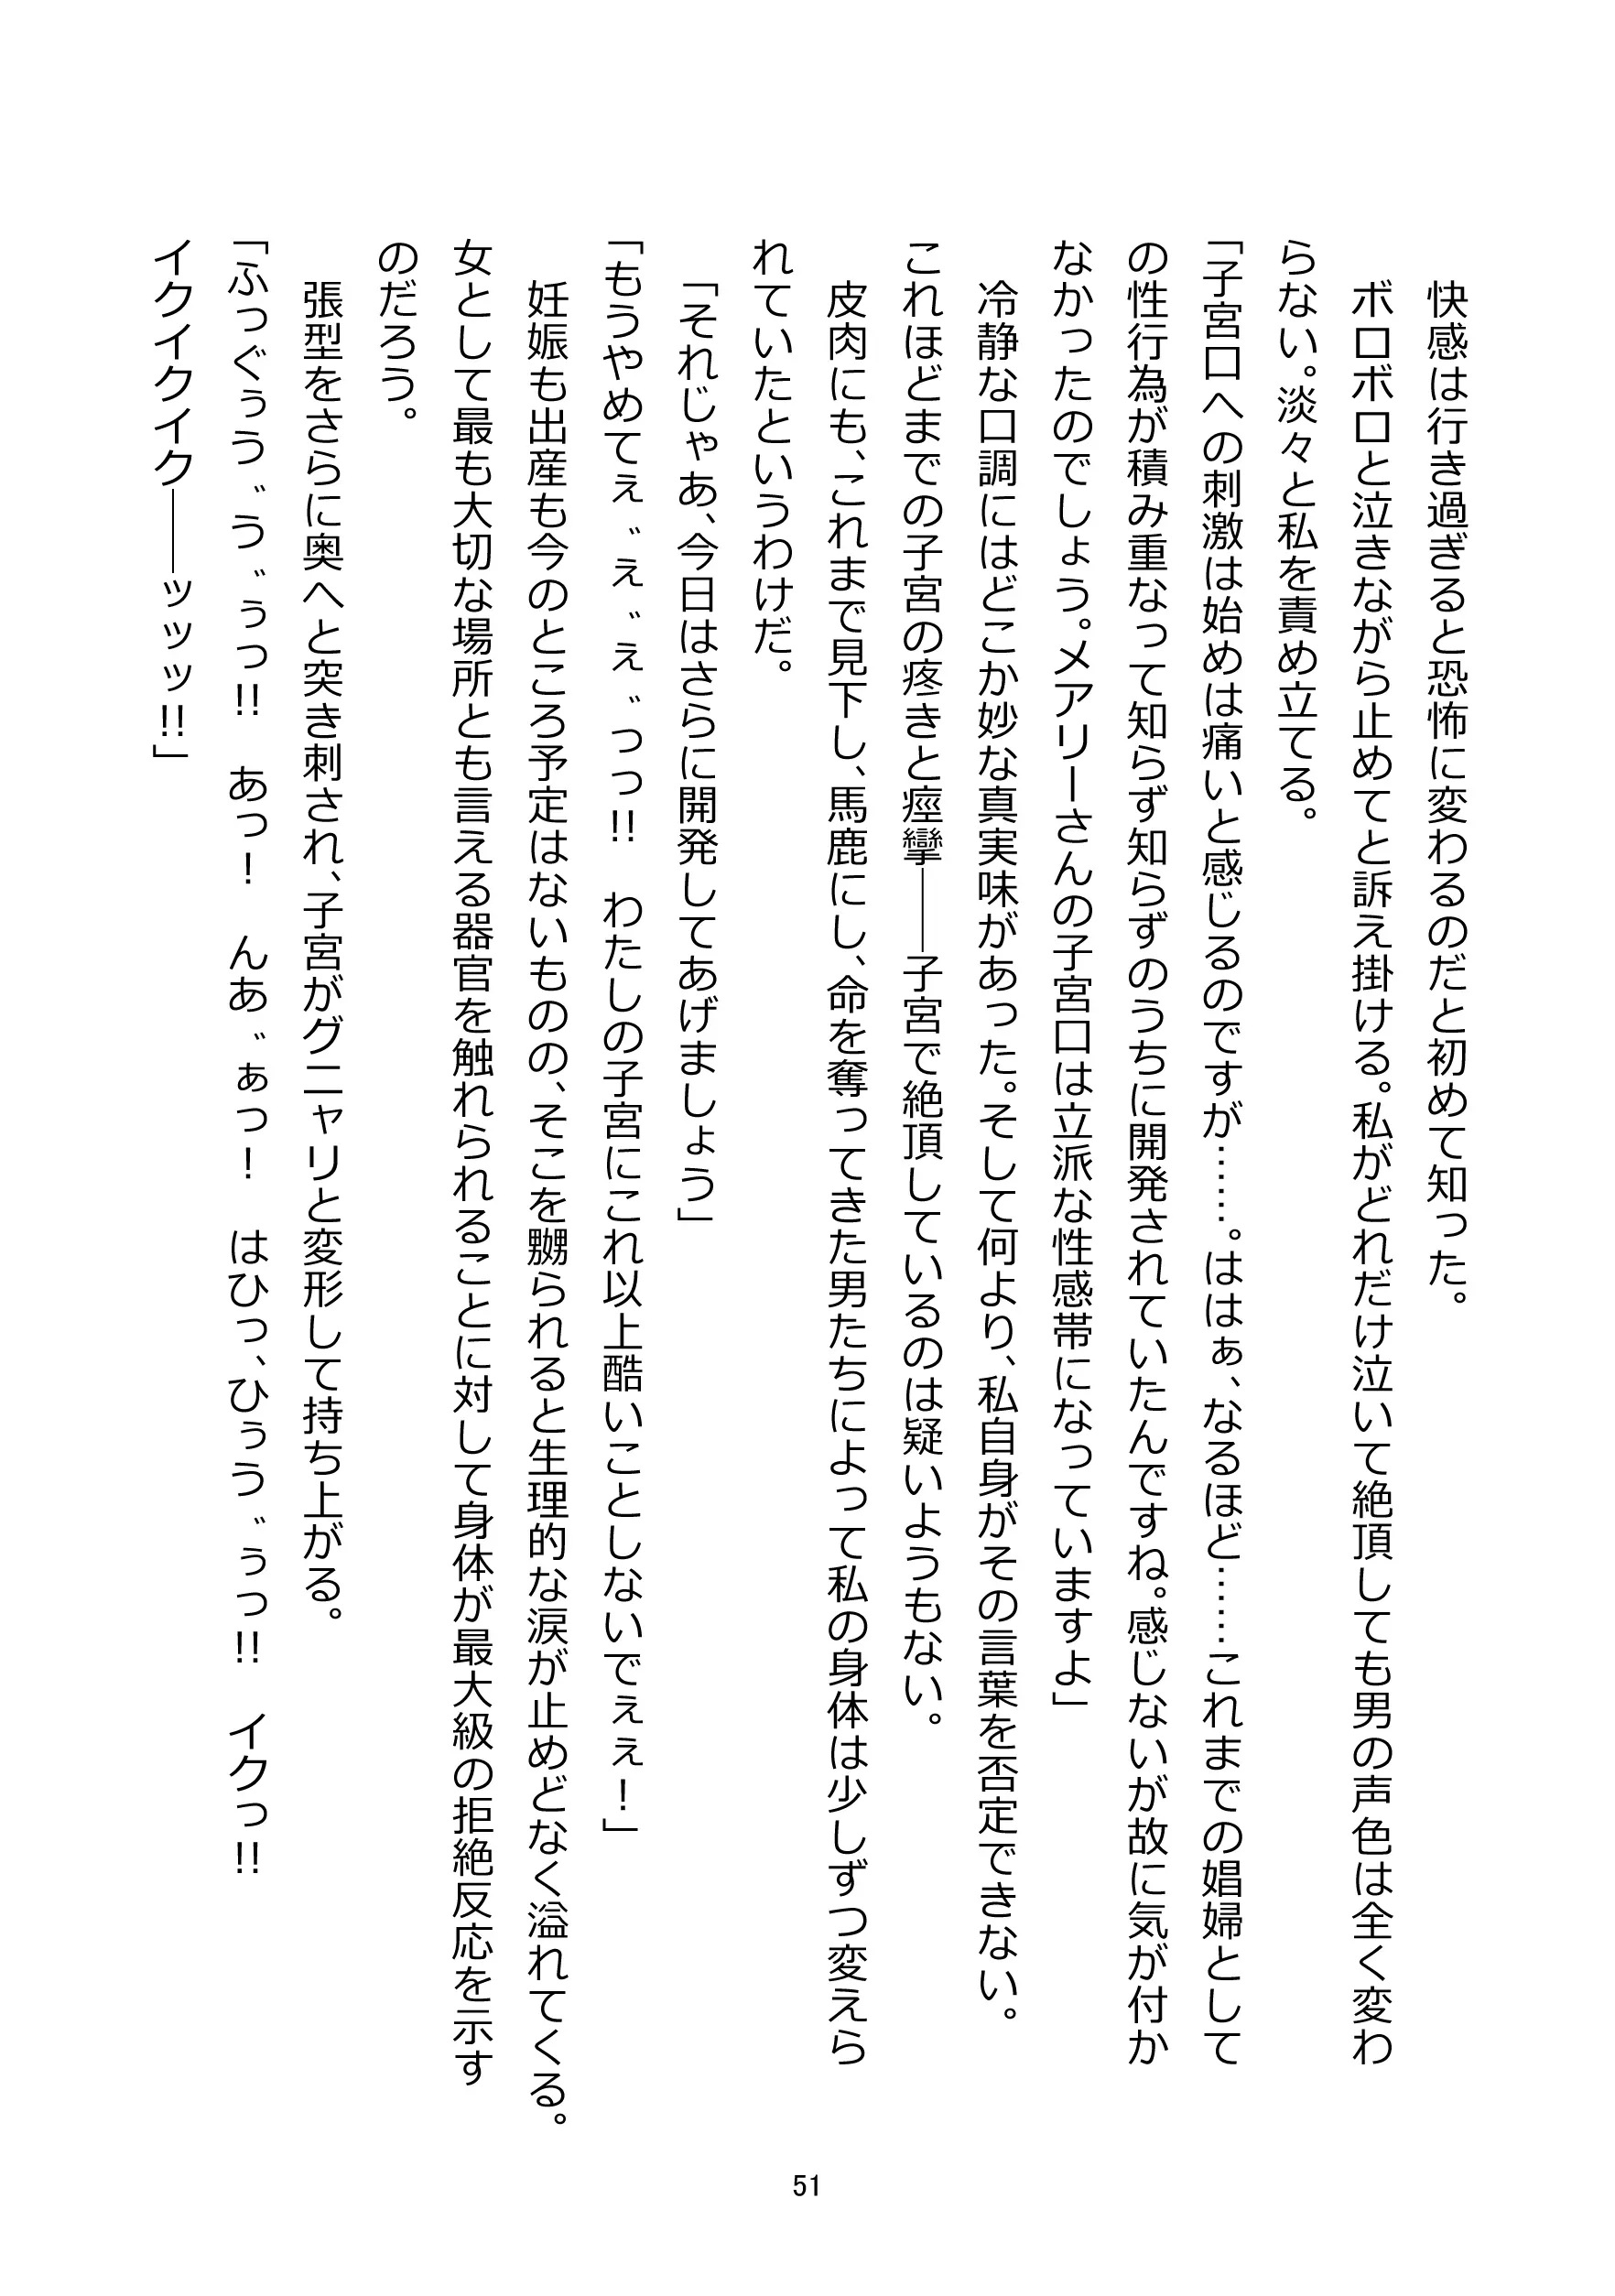 快感は行き過ぎると恐怖に変わるのだと初めて知った。
ボロボロと泣きながら止めてと訴え掛ける。私がどれだけ泣いて絶頂しても男の声色は全く変わ
らない。淡々と私を責め立てる。
「子宮口への刺激は始めは痛いと感じるのですが……。ははぁ、なるほど……これまでの娼婦として
の性行為が積み重なって知らず知らずのうちに開発されていたんですね。感じないが故に気が付か
なかったのでしょう。メアリーさんの子宮口は立派な性感帯になっていますよ」
冷静な口調にはどこか妙な真実味があった。そして何より、私自身がその言葉を否定できない。
これほどまでの子宮の疼きと痙攣――子宮で絶頂しているのは疑いようもない。
皮肉にも、これまで見下し、馬鹿にし、命を奪ってきた男たちによって私の身体は少しずつ変えら
れていたというわけだ。
「それじゃあ、今日はさらに開発してあげましょう」
「もうやめてぇ゛ぇ゛ぇ゛っっ!!　わたしの子宮にこれ以上酷いことしないでぇぇ！」
妊娠も出産も今のところ予定はないものの、そこを嬲られると生理的な涙が止めどなく溢れてくる。
女として最も大切な場所とも言える器官を触れられることに対して身体が最大級の拒絶反応を示す
のだろう。
張型をさらに奥へと突き刺され、子宮がグニャリと変形して持ち上がる。
「ふっぐぅう゛う゛ぅっ!!　あっ！　んあ゛ぁっ！　はひっ、ひぅう゛ぅっ!!　イクっ!!
イクイクイク――ッッッ!!」
51